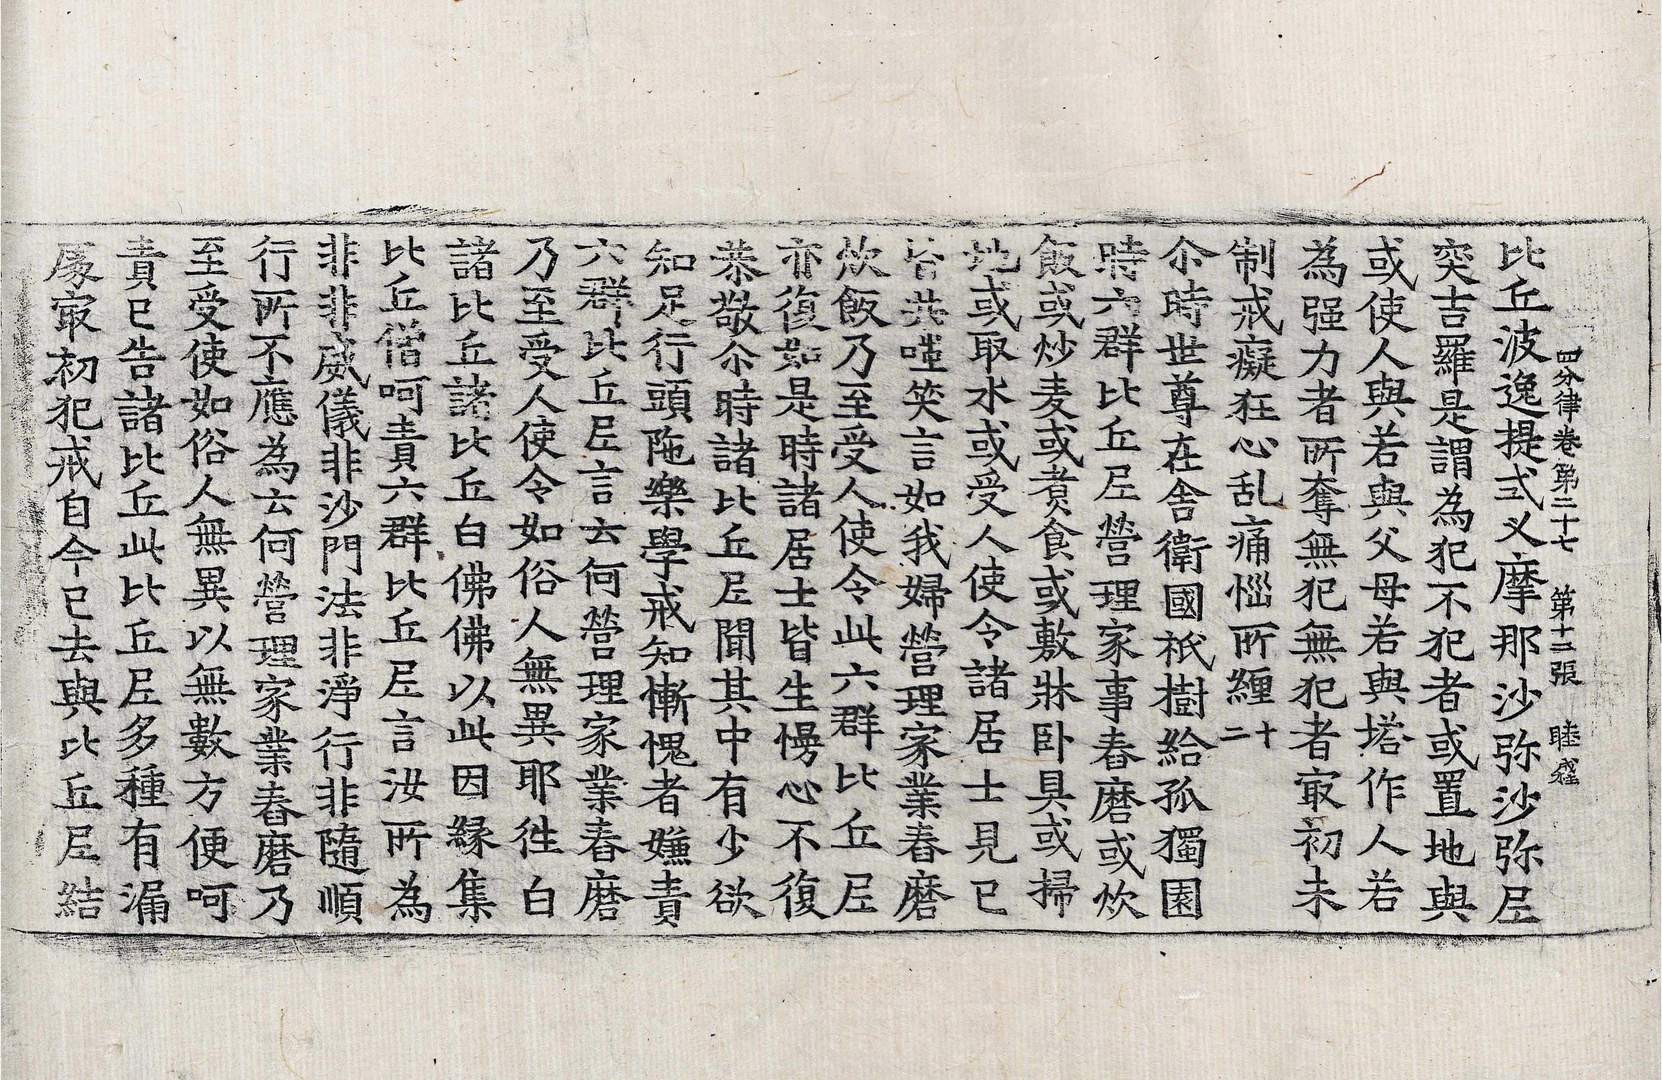 四分律卷第二十七 第十二張 睦
比丘波逸提式叉摩那沙弥沙弥尼
突吉羅是謂為犯不犯者或置地與
或使人與若與父母若與塔作人若
為强力者所奪無犯無犯者㝡初未
制戒癡狂心乱痛惱所纏 十二
尒時世尊在舍衛國祇樹給孤獨園
時六群比丘尼營理家事舂磨或炊
飯或炒麦或煮食或敷牀卧具或掃
地或取水或受人使令諸居士見已
皆共嗤笑言如我婦營理家業舂磨
炊飯乃至受人使令此六群比丘尼
亦復如是時諸居士皆生慢心不復
恭敬尒時諸比丘尼聞其中有少欲
知足行頭陁樂學戒知慚愧者嫌責
六群比丘尼言云何營理家業舂磨
乃至受人使令如俗人無異耶徃白
諸比丘諸比丘白佛佛以此因緣集
比丘僧呵責六群比丘尼言汝所為
非非威儀非沙門法非淨行非隨順
行所不應為云何營理家業舂磨乃
至受使如俗人無異以無數方便呵
責已告諸比丘此比丘尼多種有漏
處㝡初犯戒自今已去與比丘尼結